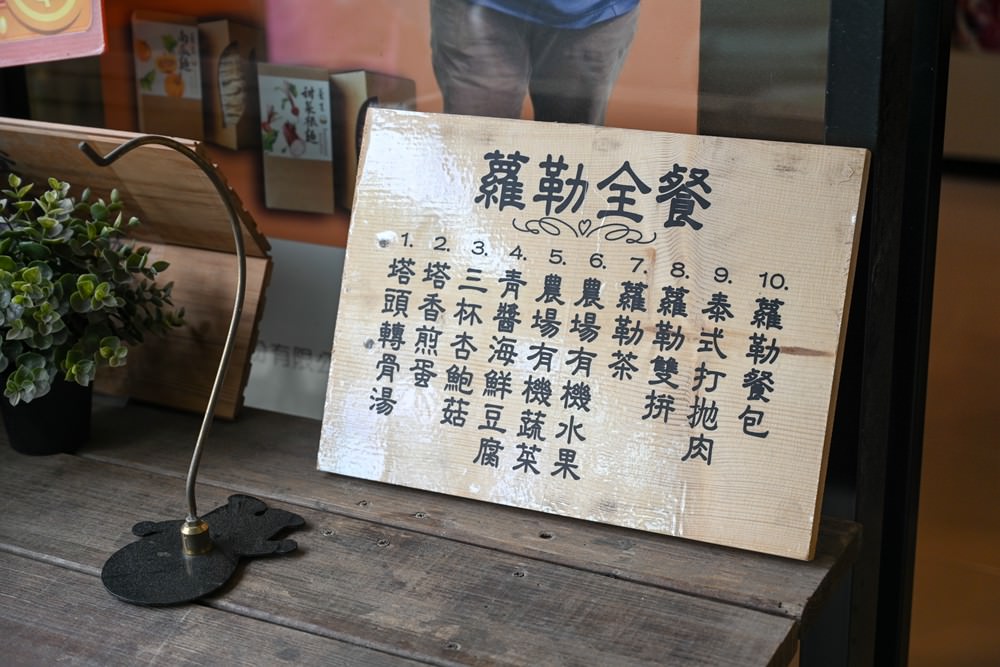 蘿勒全餐
1. 塔頭轉骨湯
2. 塔香煎蛋
3. 三杯杏鮑菇
4. 青醬海鮮豆腐
5. 農場有機蔬菜
6. 農場有機水果
7. 蘿勒茶
8. 蘿勒雙拼
9. 泰式打拋肉
10. 蘿勒餐包
甜菜根麵
有限公